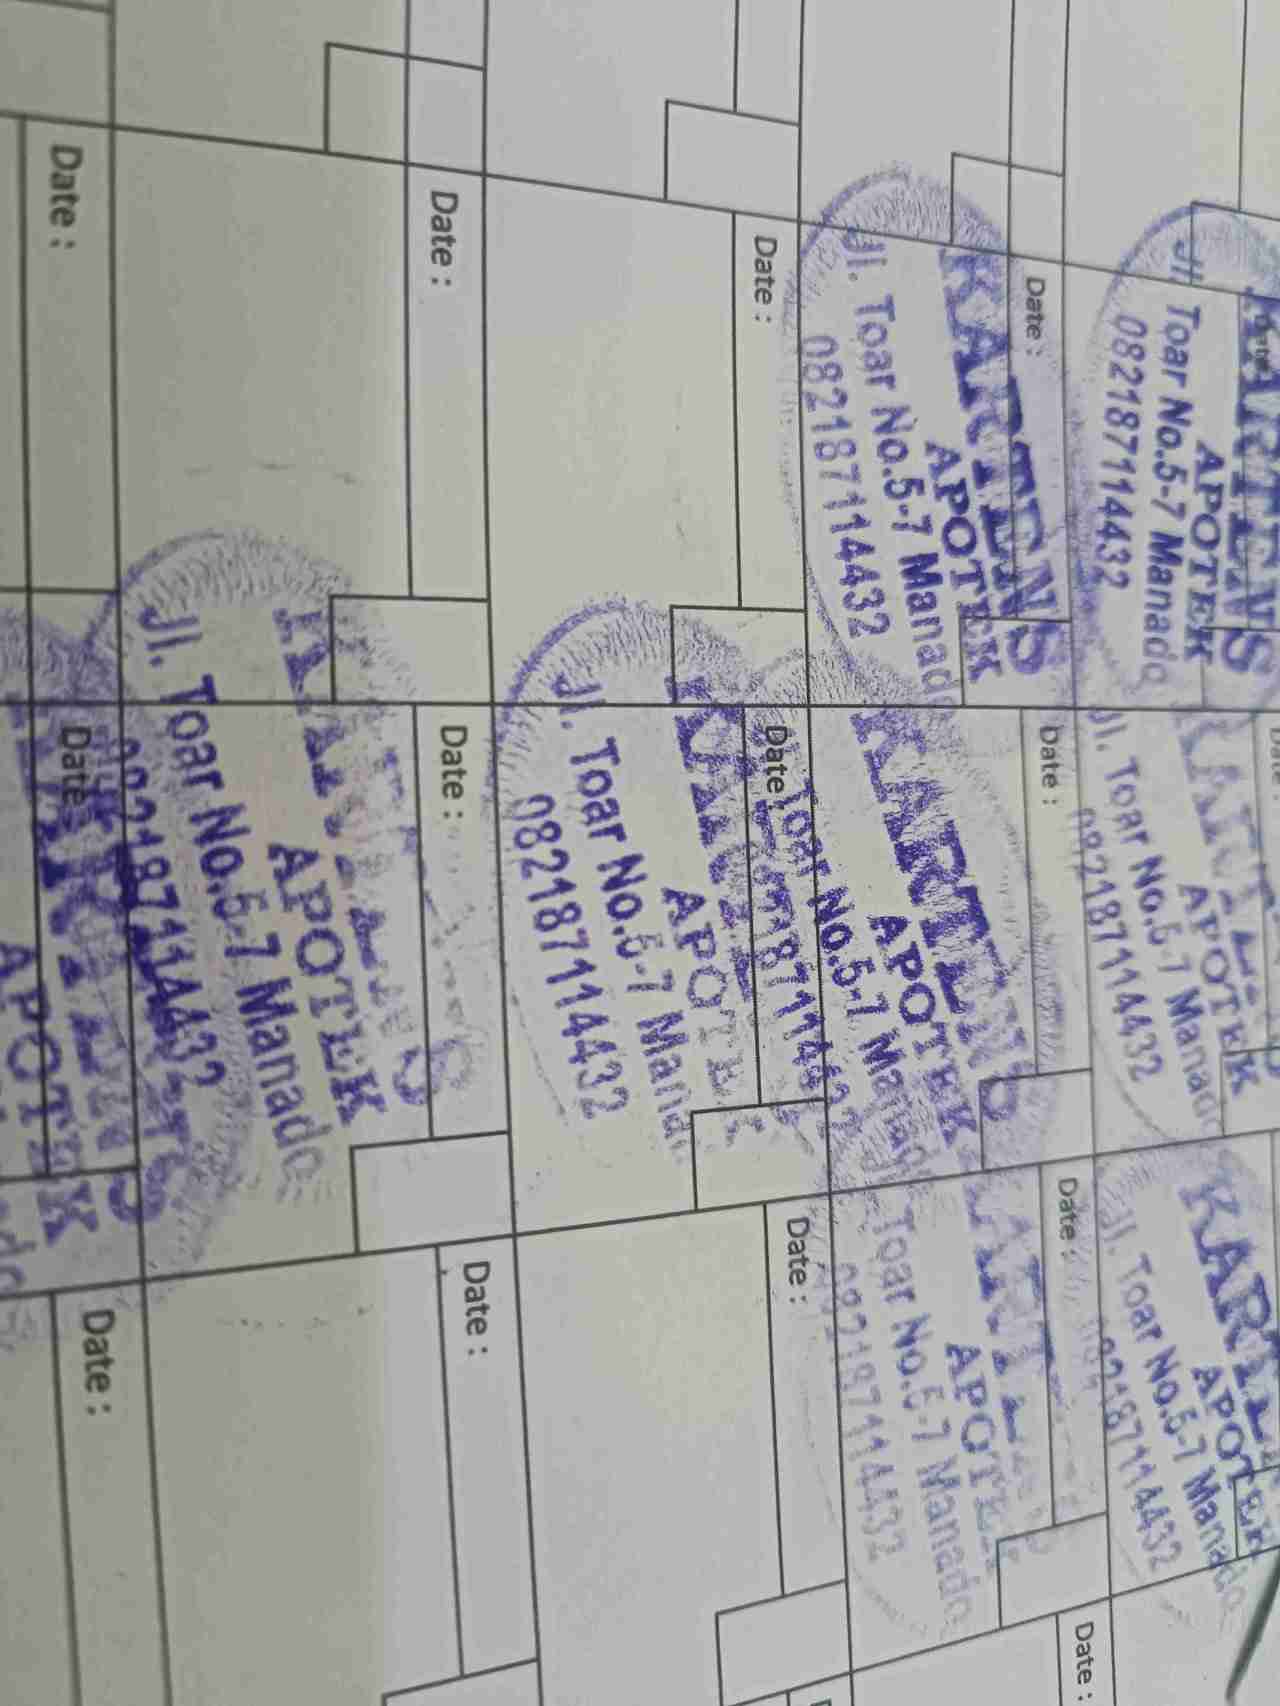 KARTENS
APOTEK
Jl. Toar No.5-7 Manado
082187114432
APOTEK
Jl. Toar No.5-7 Manado
082187114432
APOTEK
Jl. Toar No.5-7 Manado
082187114432
Date :
KARTENS
APOTEK
Jl. Toar No.5-7 Manado
082187114432
Date :
KARTENS
APOTEK
Toar No.5-7
Date :
APOTEK
Toar No.5-7 Manado
082187114432
Date :
Date :
Date
APOTEK
Jl. Toar No.5-7
082187114432
Date :
Date :
Date :
APOTEK
Jl. Toar No.5-7 Manado
082187114432
Date :
Date :
Date
APOTEK
Date :